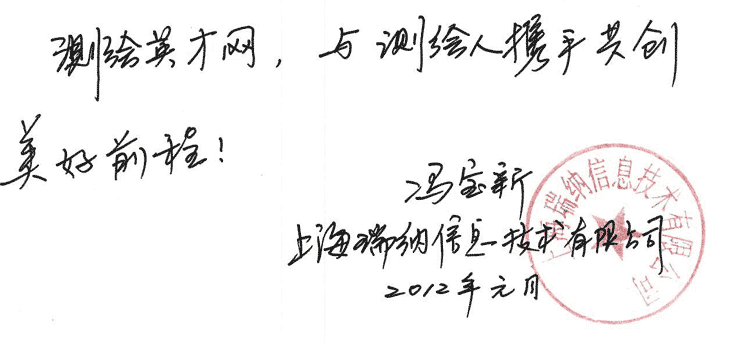 测绘英才网，与测绘人携手共创
美好前程！
冯宝新
上海瑞纳信息技术有限公司
2012年元月
上海瑞纳信息技术有限公司